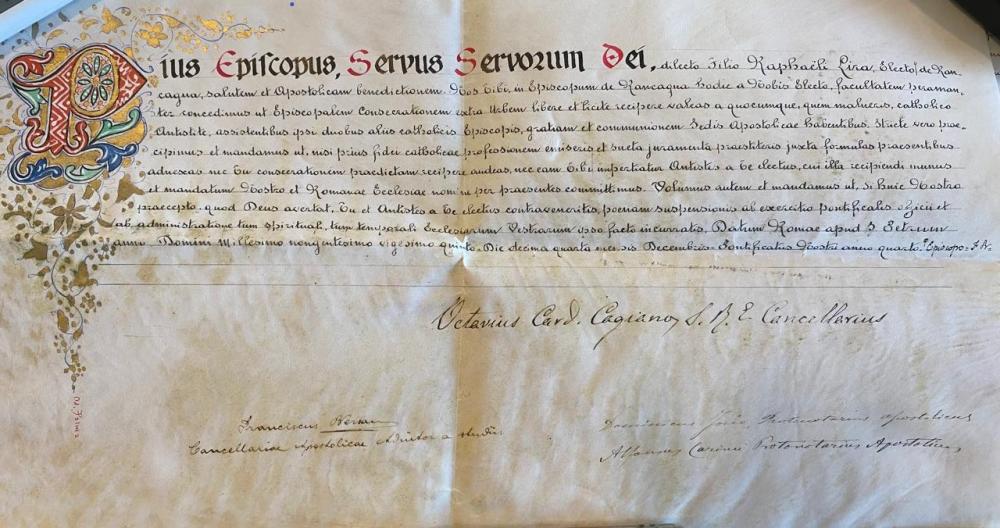 Pius Episcopus, Servus Servorum Dei, dilecto Filio Raphaëli Lira, Electo de Ran-
cagua, salutem et Apostolicam benedictionem. Nos Tibi in Episcopum de Rancagua hodie a Nobis Electo, facultatem peraman-
ter concedimus ut Episcopalem Consecrationem extra Urbem libere et licite recipere valeas a quocumque, quem malueris, catholico
Antistite, assistentibus ipsi duobus aliis catholicis Episcopis, gratiam et communionem Sedis Apostolicae habentibus. Stricte vero prae-
cipimus et mandamus ut, nisi prius fidei catholicae professionem emiseris et sueta juramenta praestiteris juxta formulas praesentibus
adnexas nec Tu consecrationem praedictam recipere audeas, nec eam Tibi impertiatur Antistes a Te electus, cui illa recipiendi munus
et mandatum Nostro et Romanae Ecclesiae nomine per praesentes committimus. Volumus autem et mandamus ut, si huic Nostro
praecepto, quod Deus avertat, Tu et Antistes a Te electus contraveneritis, poenam suspensionis ab exercitio pontificalis officii et
ab administratione tum spirituali, tum temporali Ecclesiarum Vestrarum ipso facto incurratis. Datum Romae apud S. Petrum
anno Domini Millesimo nongentesimo vigesimo quinto. Die decima quarta mensis Decembris. Pontificatus Nostri anno quarto.
Octavius Card. Cagiano, S. R. E. Cancellarius
Franciscus
Cancellariae Apostolicae Adiutor a studiis
Protonotarius Apostolicus
Alfonsus Carinci Protonotarius Apostolicus